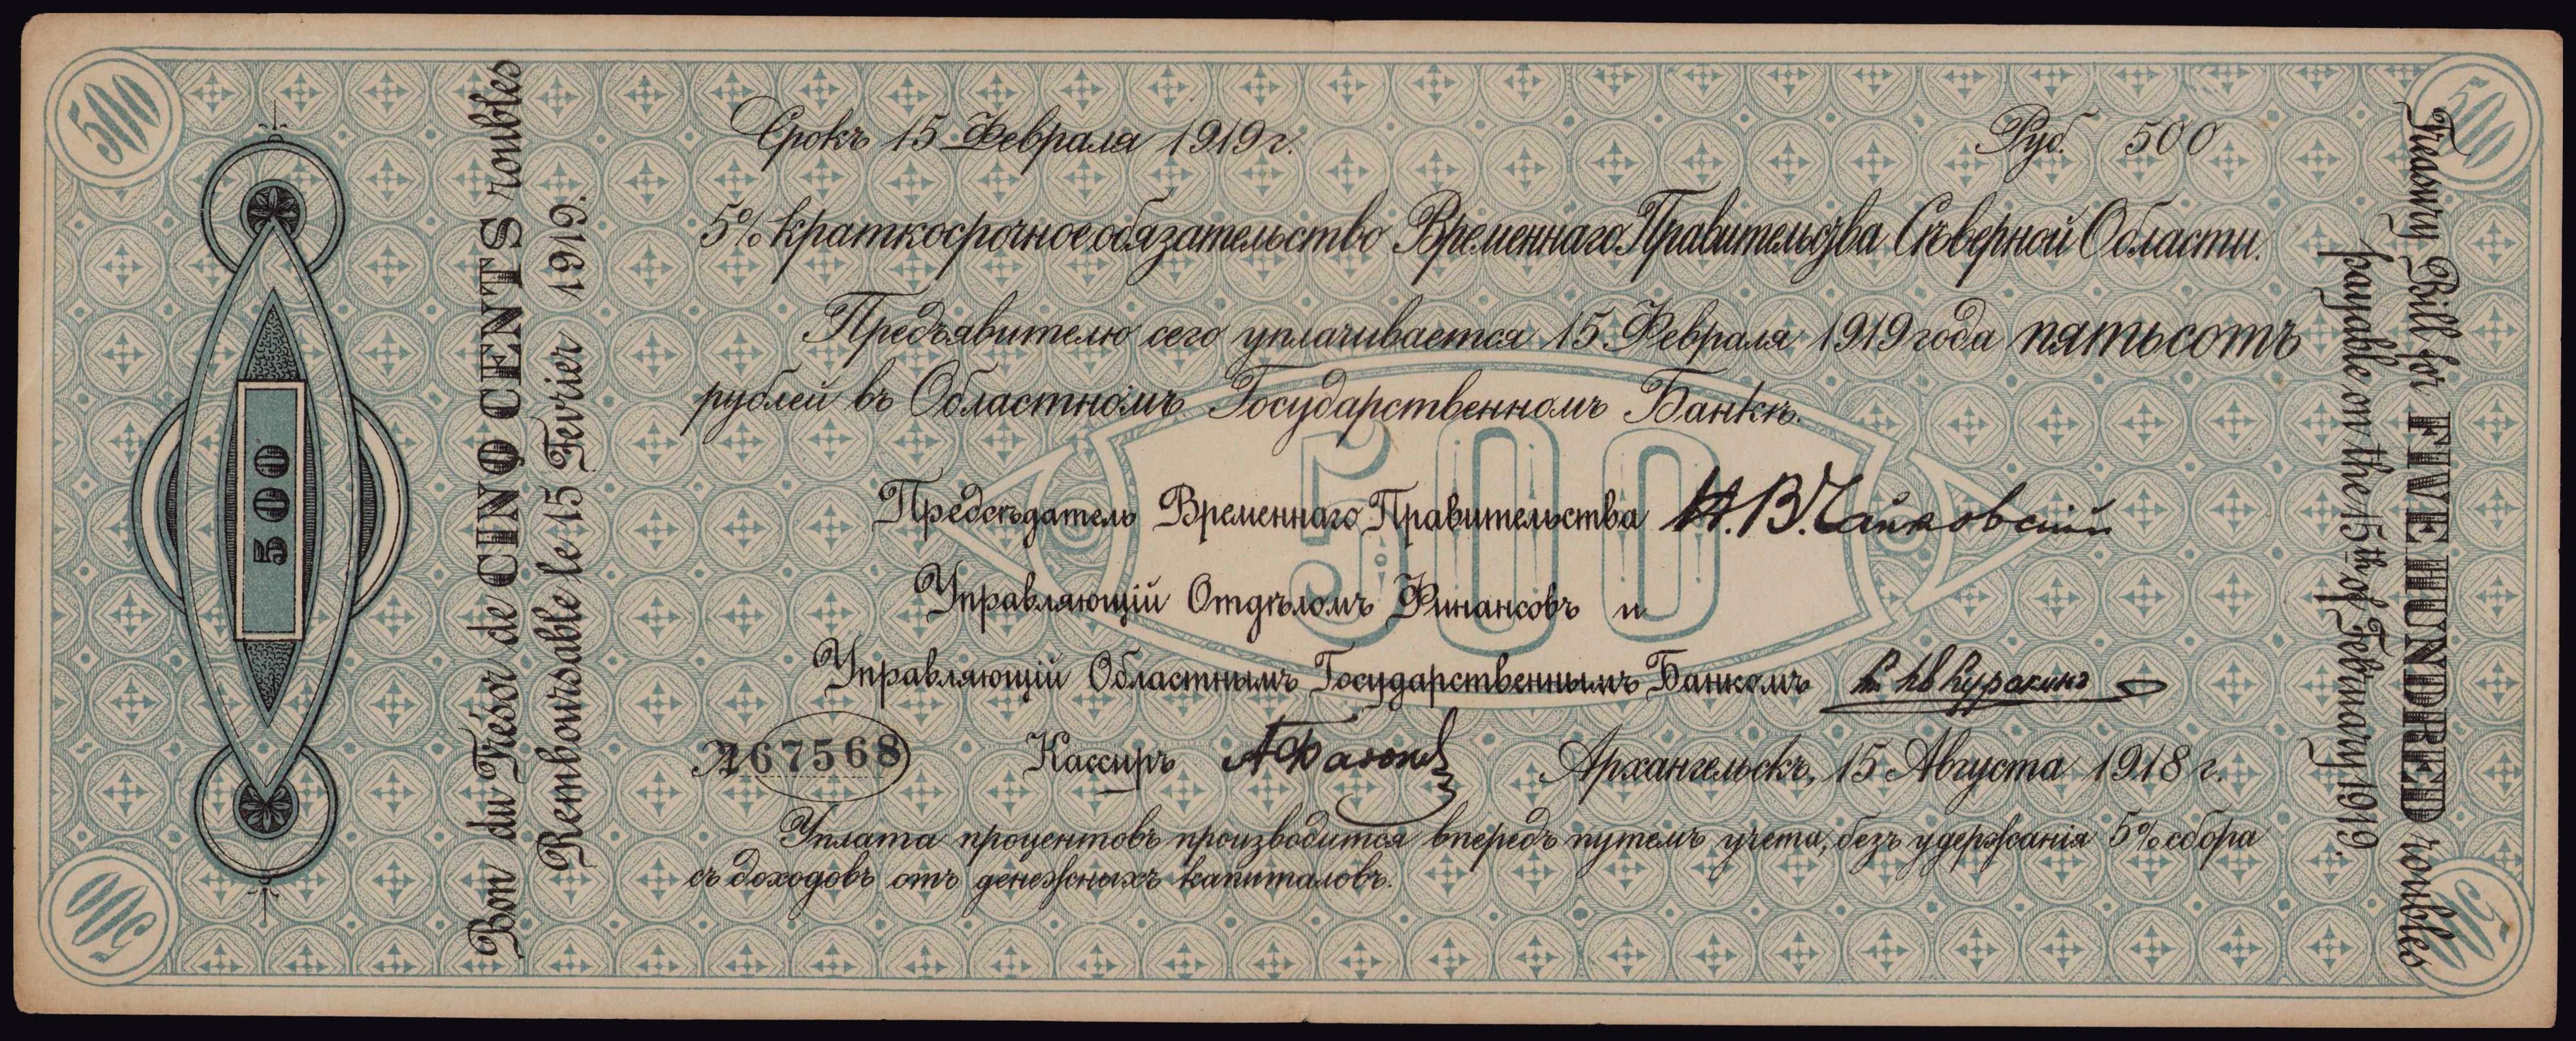 500
500
500
Bon du Trésor de CINQ CENTS roubles
Remboursable le 15 Fevrier 1919.
Срокъ 15 Февраля 1919 г.
Руб. 500
5% краткосрочное обязательство Временнаго Правительства Сѣверной Области.
Предъявителю сего уплачивается 15 Февраля 1919 года пятьсотъ
рублей въ Областномъ Государственномъ Банкѣ.
500
Предсѣдатель Временнаго Правительства Н. В. Чайковскій
Управляющій Отдѣломъ Финансовъ и
Управляющій Областнымъ Государственнымъ Банкомъ
№ 67568
Кассиръ
Архангельскъ, 15 Августа 1918 г.
Уплата процентовъ производится впередъ путемъ учета, безъ удержанія 5% сбора
съ доходовъ отъ денежныхъ капиталовъ.
Treasury Bill for FIVE HUNDRED roubles
payable on the 15th of February 1919.
500
500